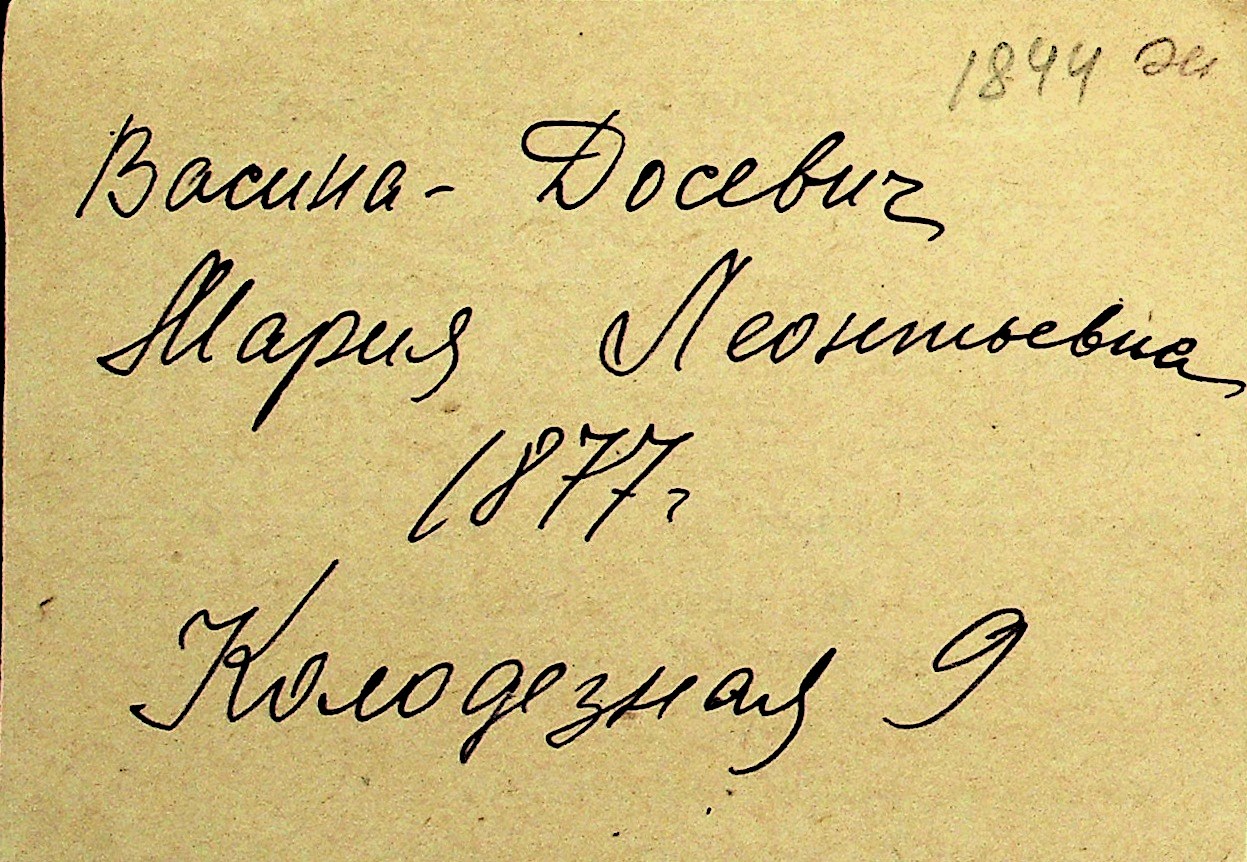 1844 эл
Васина- Досевич
Мария Леонтьевна
1877г
Колодезная 9